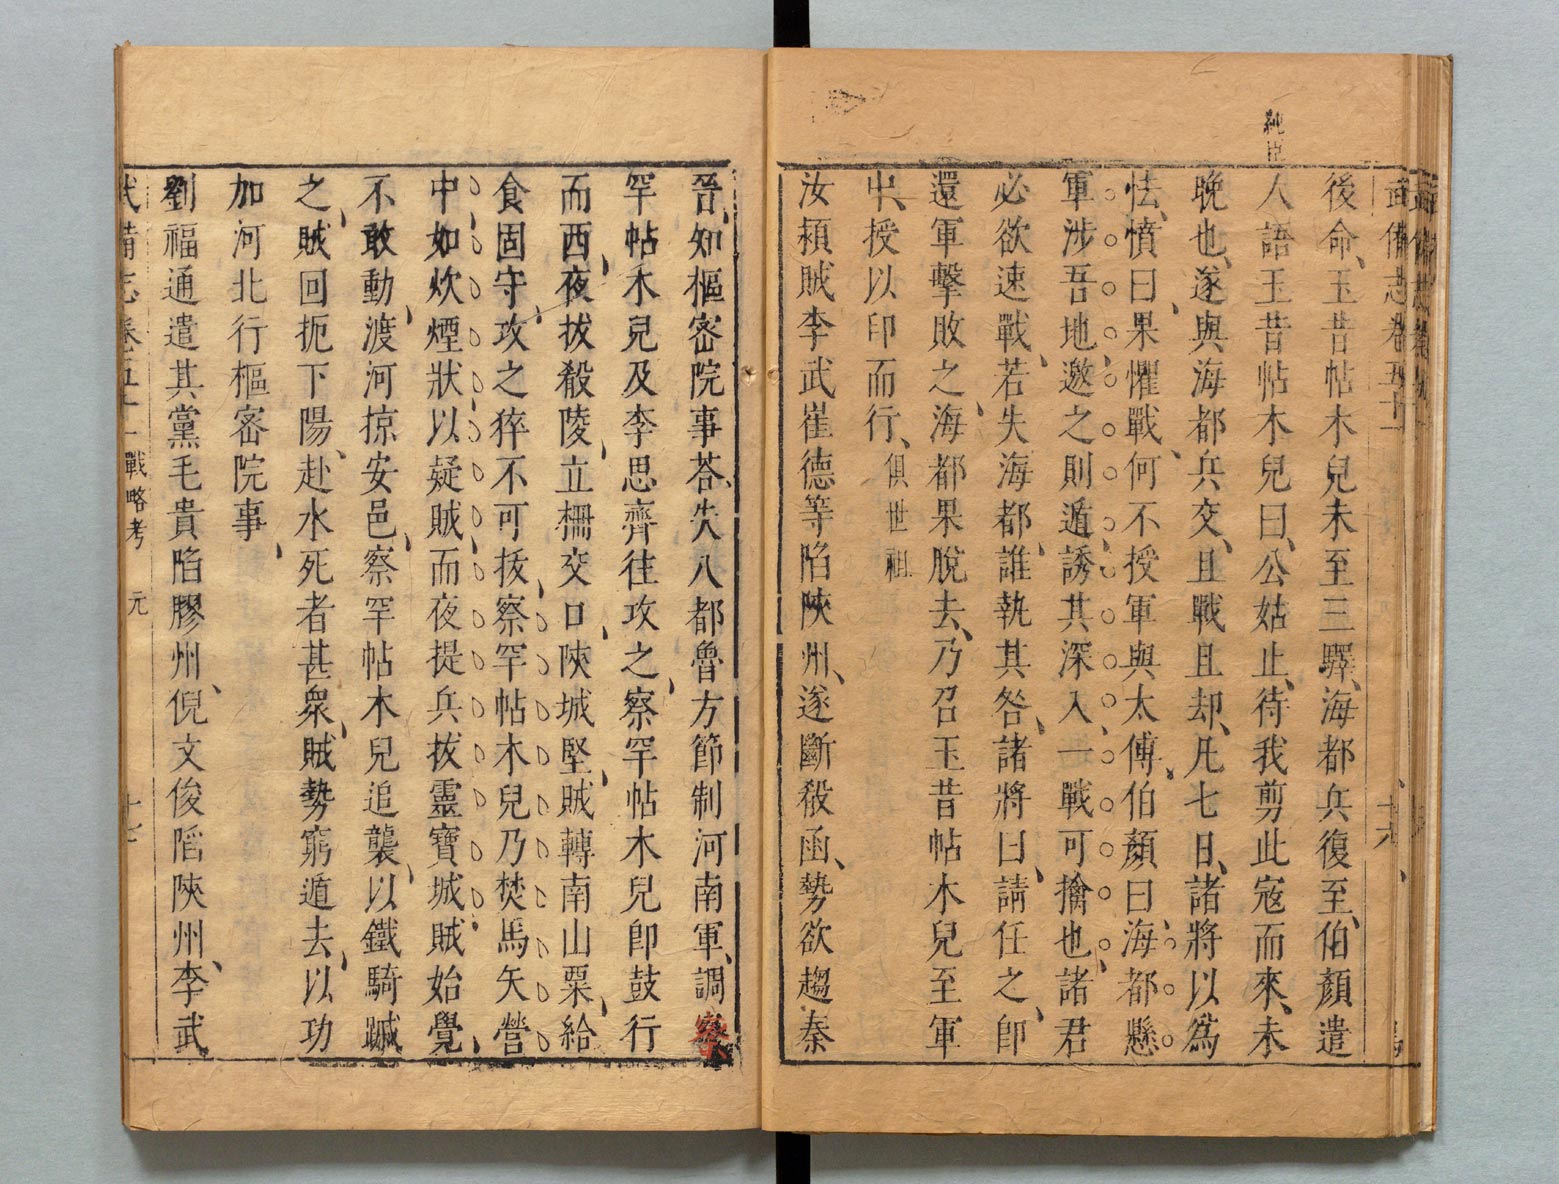 武備志卷五十一
十六
後命玉昔帖木兒未至三驛海都兵復至伯顏遣
人語玉昔帖木兒曰公姑止待我剪此寇而來未
晚也遂與海都兵交且戰且却凡七日諸將以爲
怯憤曰果懼戰何不授軍與太傅伯顏曰海都懸
軍涉吾地邀之則遁誘其深入一戰可擒也諸君
必欲速戰若失海都誰執其咎諸將曰請任之卽
還軍擊敗之海都果脫去乃召玉昔帖木兒至軍
中授以印而行俱世祖
汝潁賊李武崔德等陷陝州遂斷殽函勢欲趨秦
晉知樞密院事荅失八都魯方節制河南軍調察
罕帖木兒及李思齊往攻之察罕帖木兒卽鼓行
而西夜拔殽陵立柵交口陝城堅賊轉南山粟給
食固守攻之猝不可拔察罕帖木兒乃焚馬矢營
中如炊煙狀以疑賊而夜提兵拔靈寶城賊始覺
不敢動渡河掠安邑察罕帖木兒追襲以鐵騎蹴
之賊回扼下陽赴水死者甚衆賊勢窮遁去以功
加河北行樞密院事
劉福通遣其黨毛貴陷膠州倪文俊陷陝州李武
武備志卷五十一 戰略考 元
十七